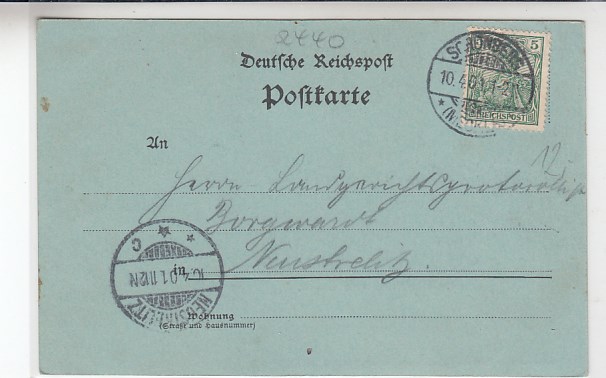 2440
Deutsche Reichspost
Postkarte
SCHÖNBERG
10.4.01. 1-2
(MECKLB)
5
REICHSPOST
An
Herrn Landgerichtsprotocollist
Borgwardt
in Neustrelitz.
C
10.4.01.11-12N
NEUSTRELITZ
Wohnung
(Straße und Hausnummer)